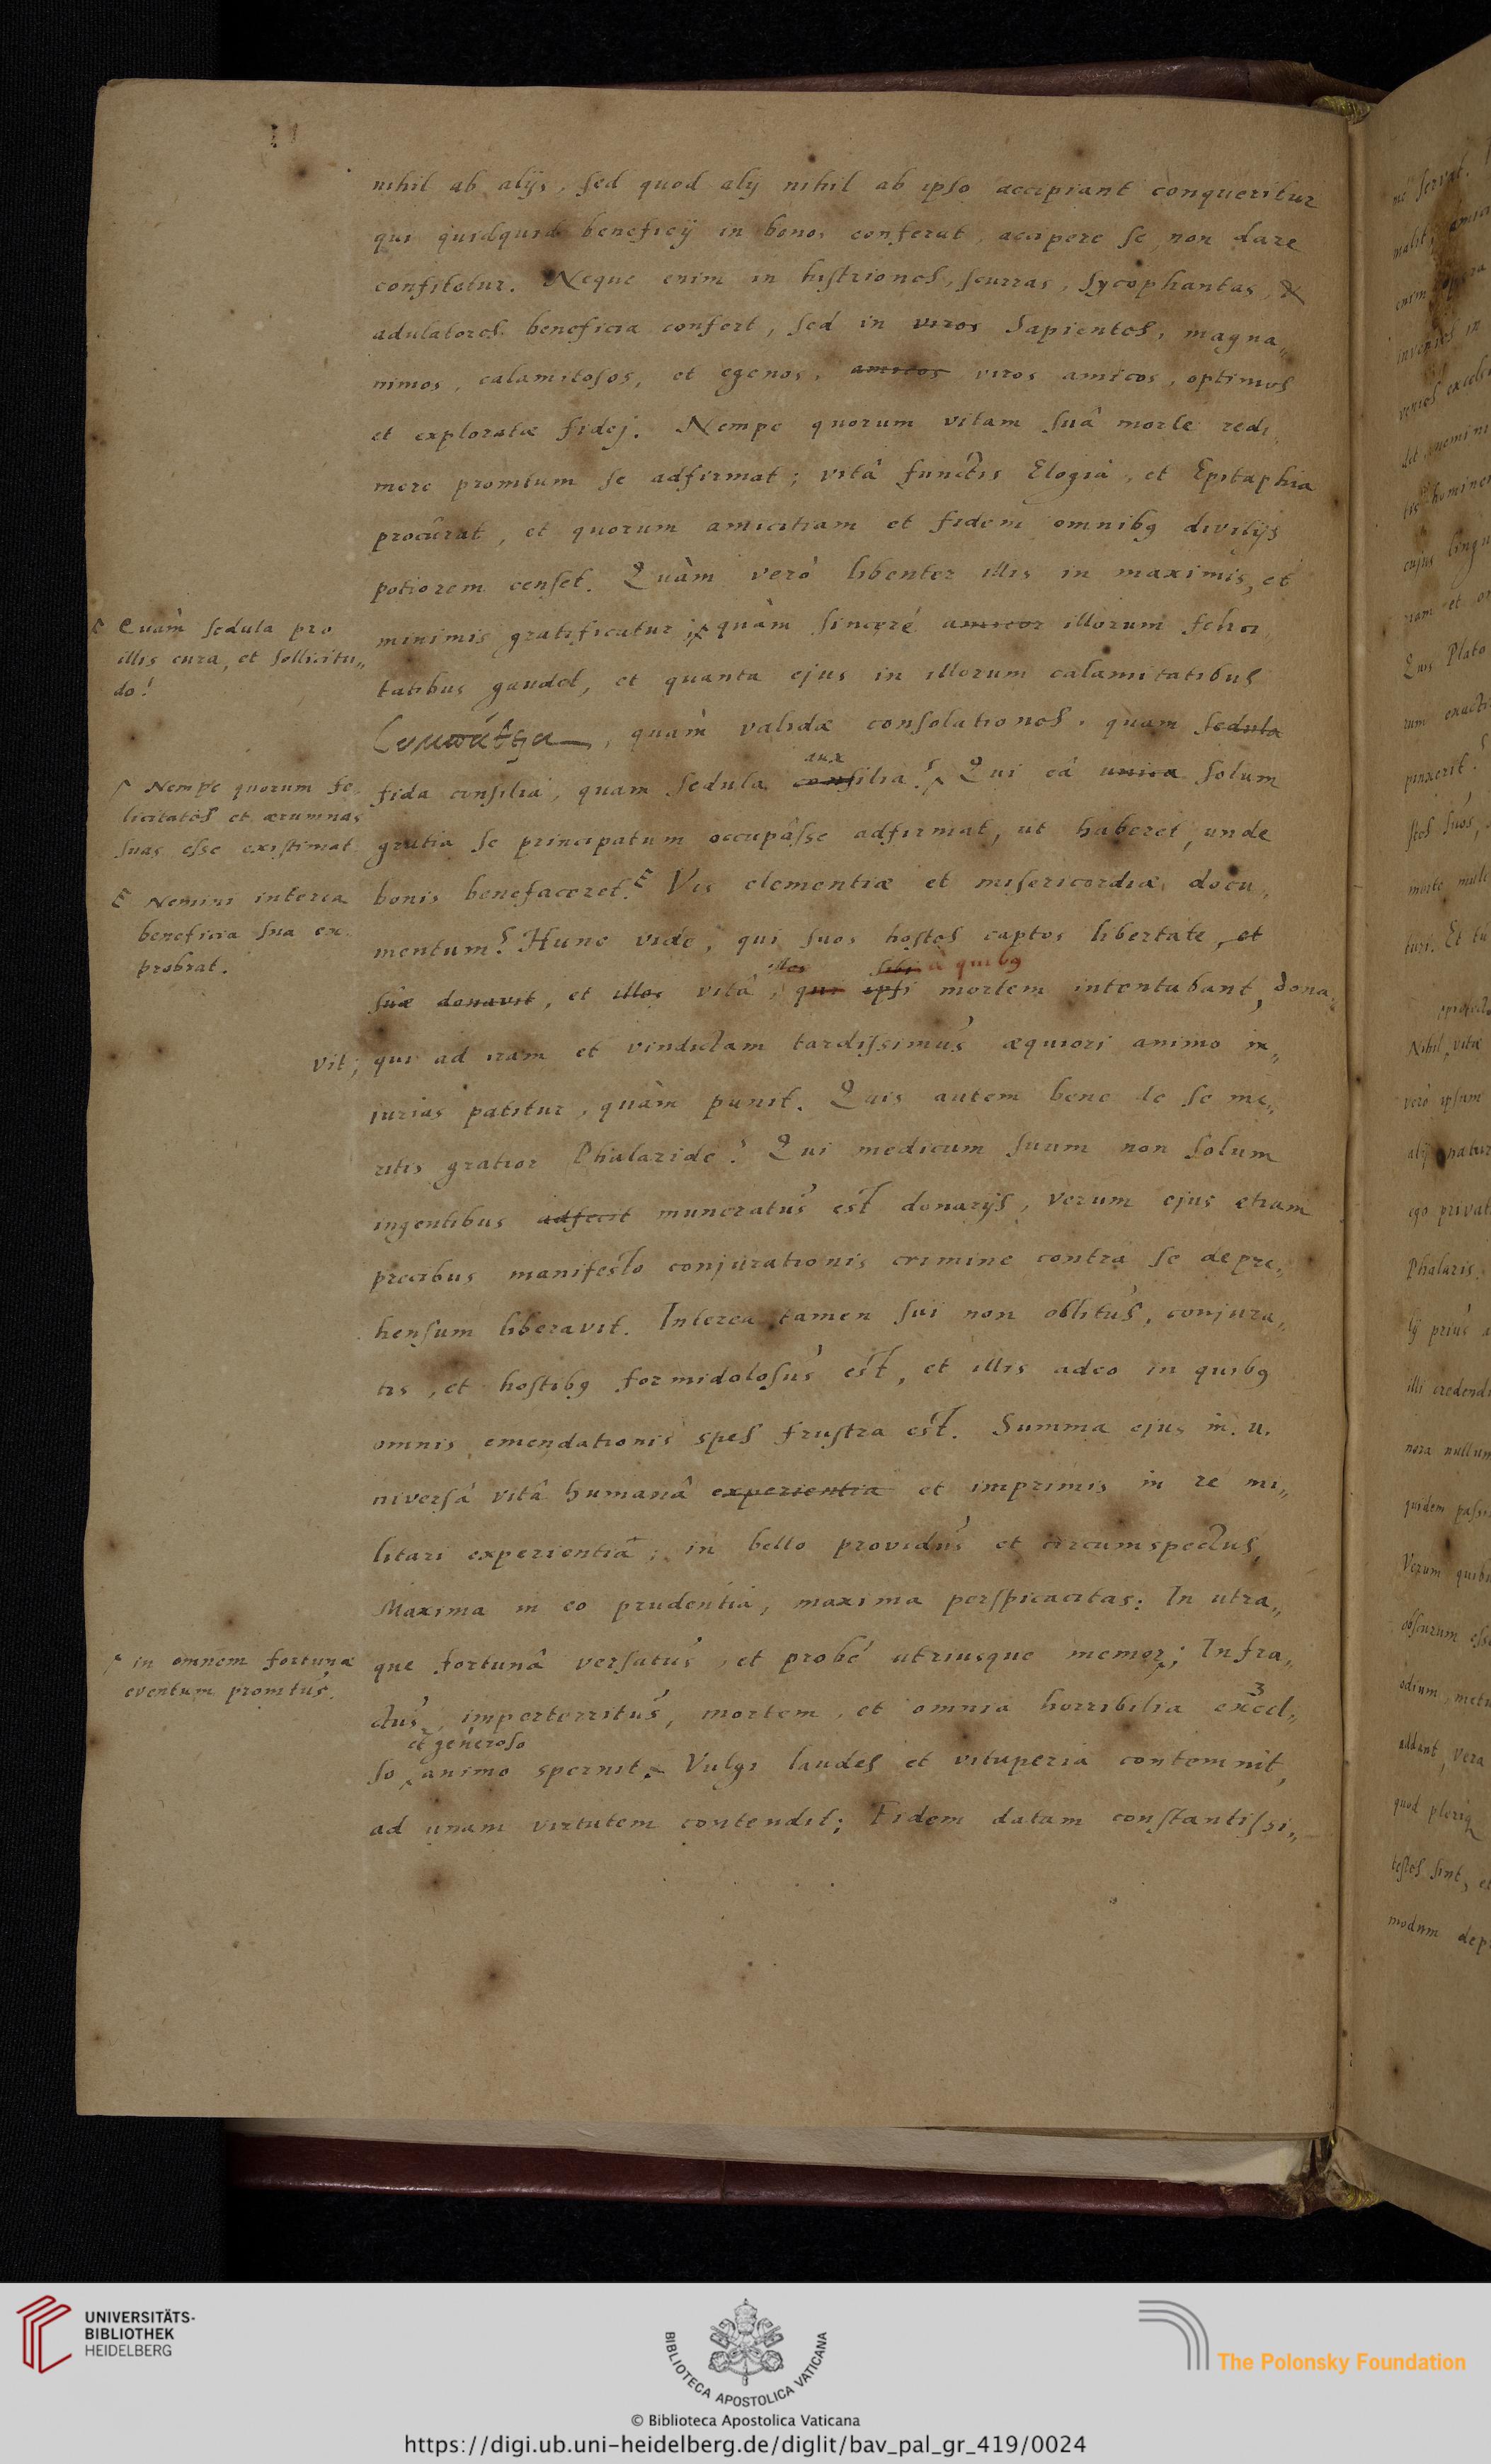 nihil ab alijs, sed quod alij nihil ab ipso accipiant conqueritur
qui quidquid beneficij in bonos conferat, accipere se, non dare
confitetur. Neque enim in histriones, scurras, sycophantas, &
adulatores beneficia confert, sed in viros sapientes, magna„
nimos, calamitosos, et egenos, amicos viros amicos, optimos
et exploratæ fidej. Nempe quorum vitam suâ morte redi„
mere promtum se adfirmat; vitâ functis Elogia, et Epitaphia
procurat, et quorum amicitiam et fidem omnibq divitijs
potiorem censet. Quàm verò libenter illis in maximis, et
minimis gratificatur; quàm sinceré amicor illorum felici„
tatibus gaudet, et quanta ejus in illorum calamitatibus
, quàm validæ consolationes, quam sedula
aux
fida consilia, quam sedula consilia? Qui eâ unica solum
gratia se principatum occupâsse adfirmat, ut haberet, unde
bonis benefaceret. Vis clementiæ et misericordiæ docu„
mentum? Hunc vide, qui suos hostes captos libertate, et
illos sibi à quibq
suæ donavit, et illos vitâ, qui ipsi mortem intentabant, dona„
vit; qui ad iram et vindictam tardissimus æquiori animo in„
jurias patitur, quàm punit. Quis autem bene de se me„
ritis gratior Phalaride? Qui medicum suum non solum
ingentibus adfecit muneratus est donarijs, verum ejus etiam
precibus manifesto conjurationis crimine contra se depre„
hensum liberavit. Interea tamen sui non oblitus, conjura„
tis, et hostibq formidolosus est, et illis adeo in quibq
omnis emendationis spes frustra est. Summa ejus in u„
niversâ vitâ humanâ experientia et imprimis in re mi„
litari experientia; in bello providus et circumspectus,
Maxima in eo prudentia, maxima perspicacitas: In utra„
que fortunâ versatus, et probé utriusque memor; Infra„
ctus, imperterritus, mortem, et omnia horribilia excel„
et generoso
so animo spernit. Vulgi laudes et vituperia contemnit,
ad unam virtutem contendit; Fidem datam constantissi„
Quàm sedula pro
illis cura, et sollicitu„
do!
Nempe quorum fe„
licitates et ærumnas
suas esse existimat
Nemini interea
beneficia sua ex„
probrat.
in omnem fortunæ
eventum promtus.
UNIVERSITÄTS-
BIBLIOTHEK
HEIDELBERG
BIBLIOTECA APOSTOLICA VATICANA
The Polonsky Foundation
© Biblioteca Apostolica Vaticana
https://digi.ub.uni-heidelberg.de/diglit/bav_pal_gr_419/0024